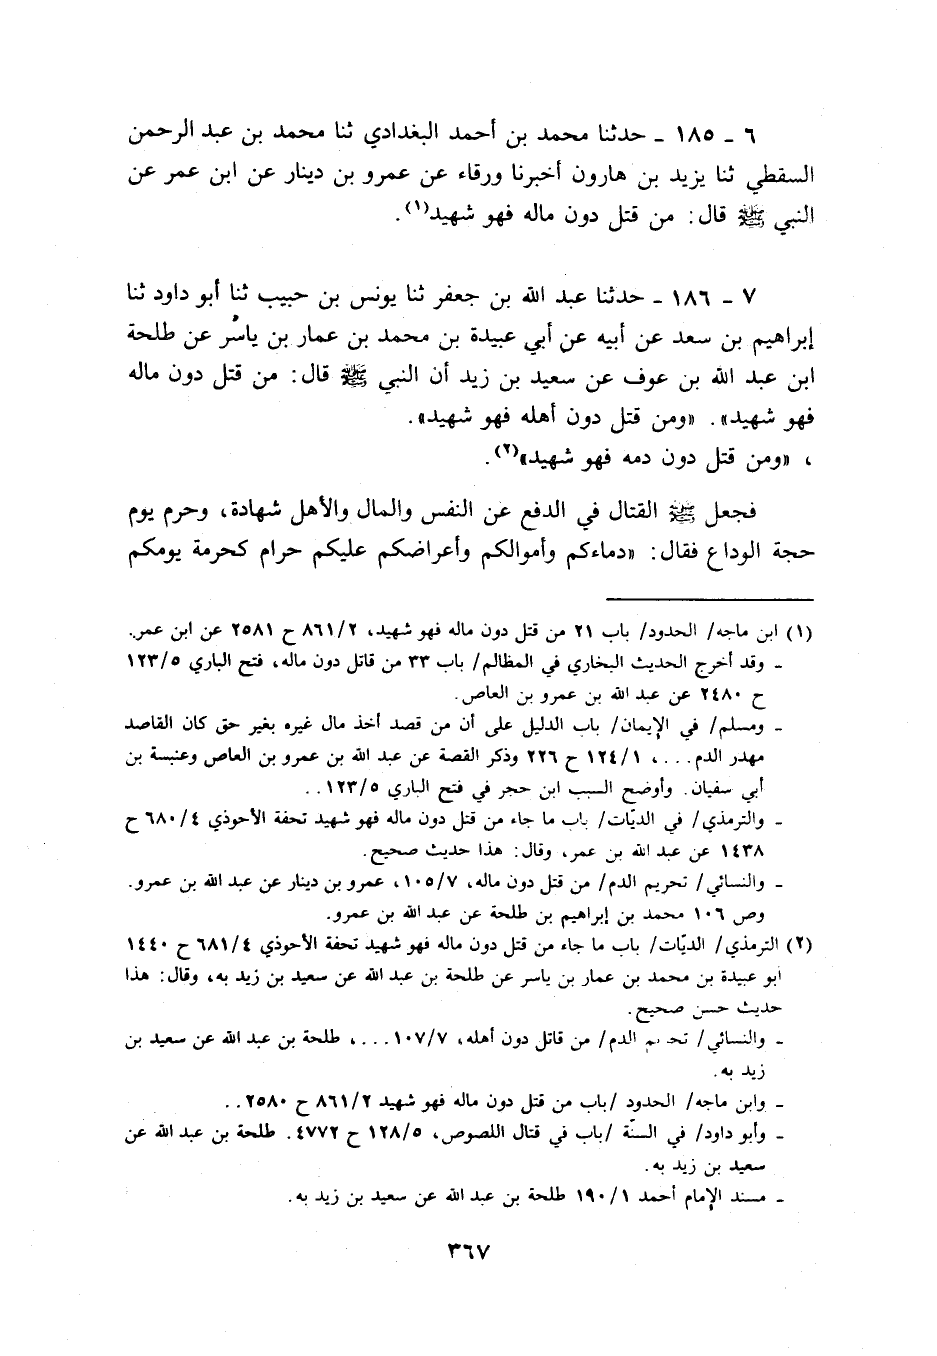 ٦ ـ ١٨٥ ـ حدثنا محمد بن أحمد البغدادي ثنا محمد بن عبد الرحمن
السقطي ثنا يزيد بن هارون أخبرنا ورقاء عن عمرو بن دينار عن ابن عمر عن
النبي ﷺ قال: من قتل دون ماله فهو شهيد(١).
٧ ـ ١٨٦ ـ حدثنا عبد الله بن جعفر ثنا يونس بن حبيب ثنا أبو داود ثنا
إبراهيم بن سعد عن أبيه عن أبي عبيدة بن محمد بن عمار بن ياسُر عن طلحة
ابن عبد الله بن عوف عن سعيد بن زيد أن النبي ﷺ قال: من قتل دون ماله
فهو شهيد». «ومن قتل دون أهله فهو شهيد».
، «ومن قتل دون دمه فهو شهيد»(٢).
فجعل ﷺ القتال في الدفع عن النفس والمال والأهل شهادة، وحرم يوم
حجة الوداع فقال: «دماءكم وأموالكم وأعراضكم عليكم حرام كحرمة يومكم
(١) ابن ماجه/ الحدود/ باب ٢١ من قتل دون ماله فهو شهيد، ٨٦١/٢ ح ٢٥٨١ عن ابن عمر.
ـ وقد أخرج الحديث البخاري في المظالم/ باب ٣٣ من قاتل دون ماله، فتح الباري ١٢٣/٥
ح ٢٤٨٠ عن عبد الله بن عمرو بن العاص.
ـ ومسلم/ في الإيمان/ باب الدليل على أن من قصد أخذ مال غيره بغير حق كان القاصد
مهدر الدم...، ١٢٤/١ ح ٢٢٦ وذكر القصة عن عبد الله بن عمرو بن العاص وعنبسة بن
أبي سفيان. وأوضح السبب ابن حجر في فتح الباري ١٢٣/٥..
ـ والترمذي/ في الديّات/ باب ما جاء من قتل دون ماله فهو شهيد تحفة الأحوذي ٦٨٠/٤ ح
١٤٣٨ عن عبد الله بن عمر، وقال: هذا حديث صحيح.
ـ والنسائي/ تحريم الدم/ من قتل دون ماله، ١٠٥/٧، عمرو بن دينار عن عبد الله بن عمرو.
وص ١٠٦ محمد بن إبراهيم بن طلحة عن عبد الله بن عمرو.
(٢) الترمذي/ الديّات/ باب ما جاء من قتل دون ماله فهو شهيد تحفة الأحوذي ٦٨١/٤ ح ١٤٤٠
أبو عبيدة بن محمد بن عمار بن ياسر عن طلحة بن عبد الله عن سعيد بن زيد به، وقال: هذا
حديث حسن صحيح.
ـ والنسائي/ تحريم الدم/ من قاتل دون أهله، ١٠٧/٧...، طلحة بن عبد الله عن سعيد بن
زيد به.
ـ وابن ماجه/ الحدود /باب من قتل دون ماله فهو شهيد ٨٦١/٢ ح ٢٥٨٠..
ـ وأبو داود/ في السنّة /باب في قتال اللصوص، ١٢٨/٥ ح ٤٧٧٢. طلحة بن عبد الله عن
سعيد بن زيد به.
ـ مسند الإمام أحمد ١٩٠/١ طلحة بن عبد الله عن سعيد بن زيد به.
٣٦٧